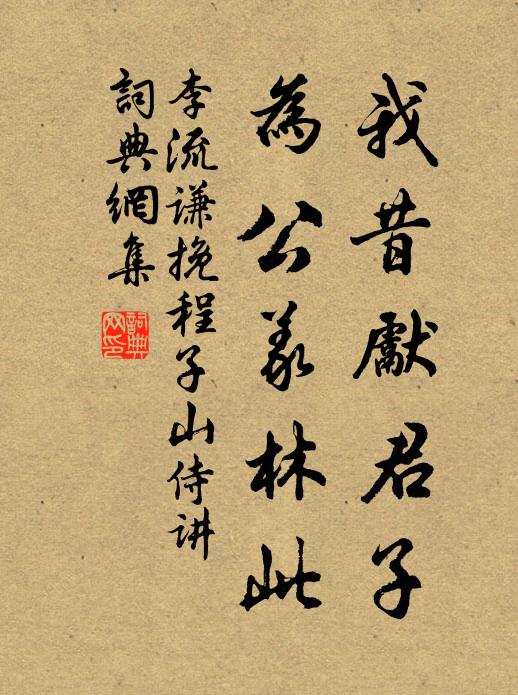 我昔獻君子
為公羕林此
李流谦挽程子山侍讲
詞典網集
詞典網印